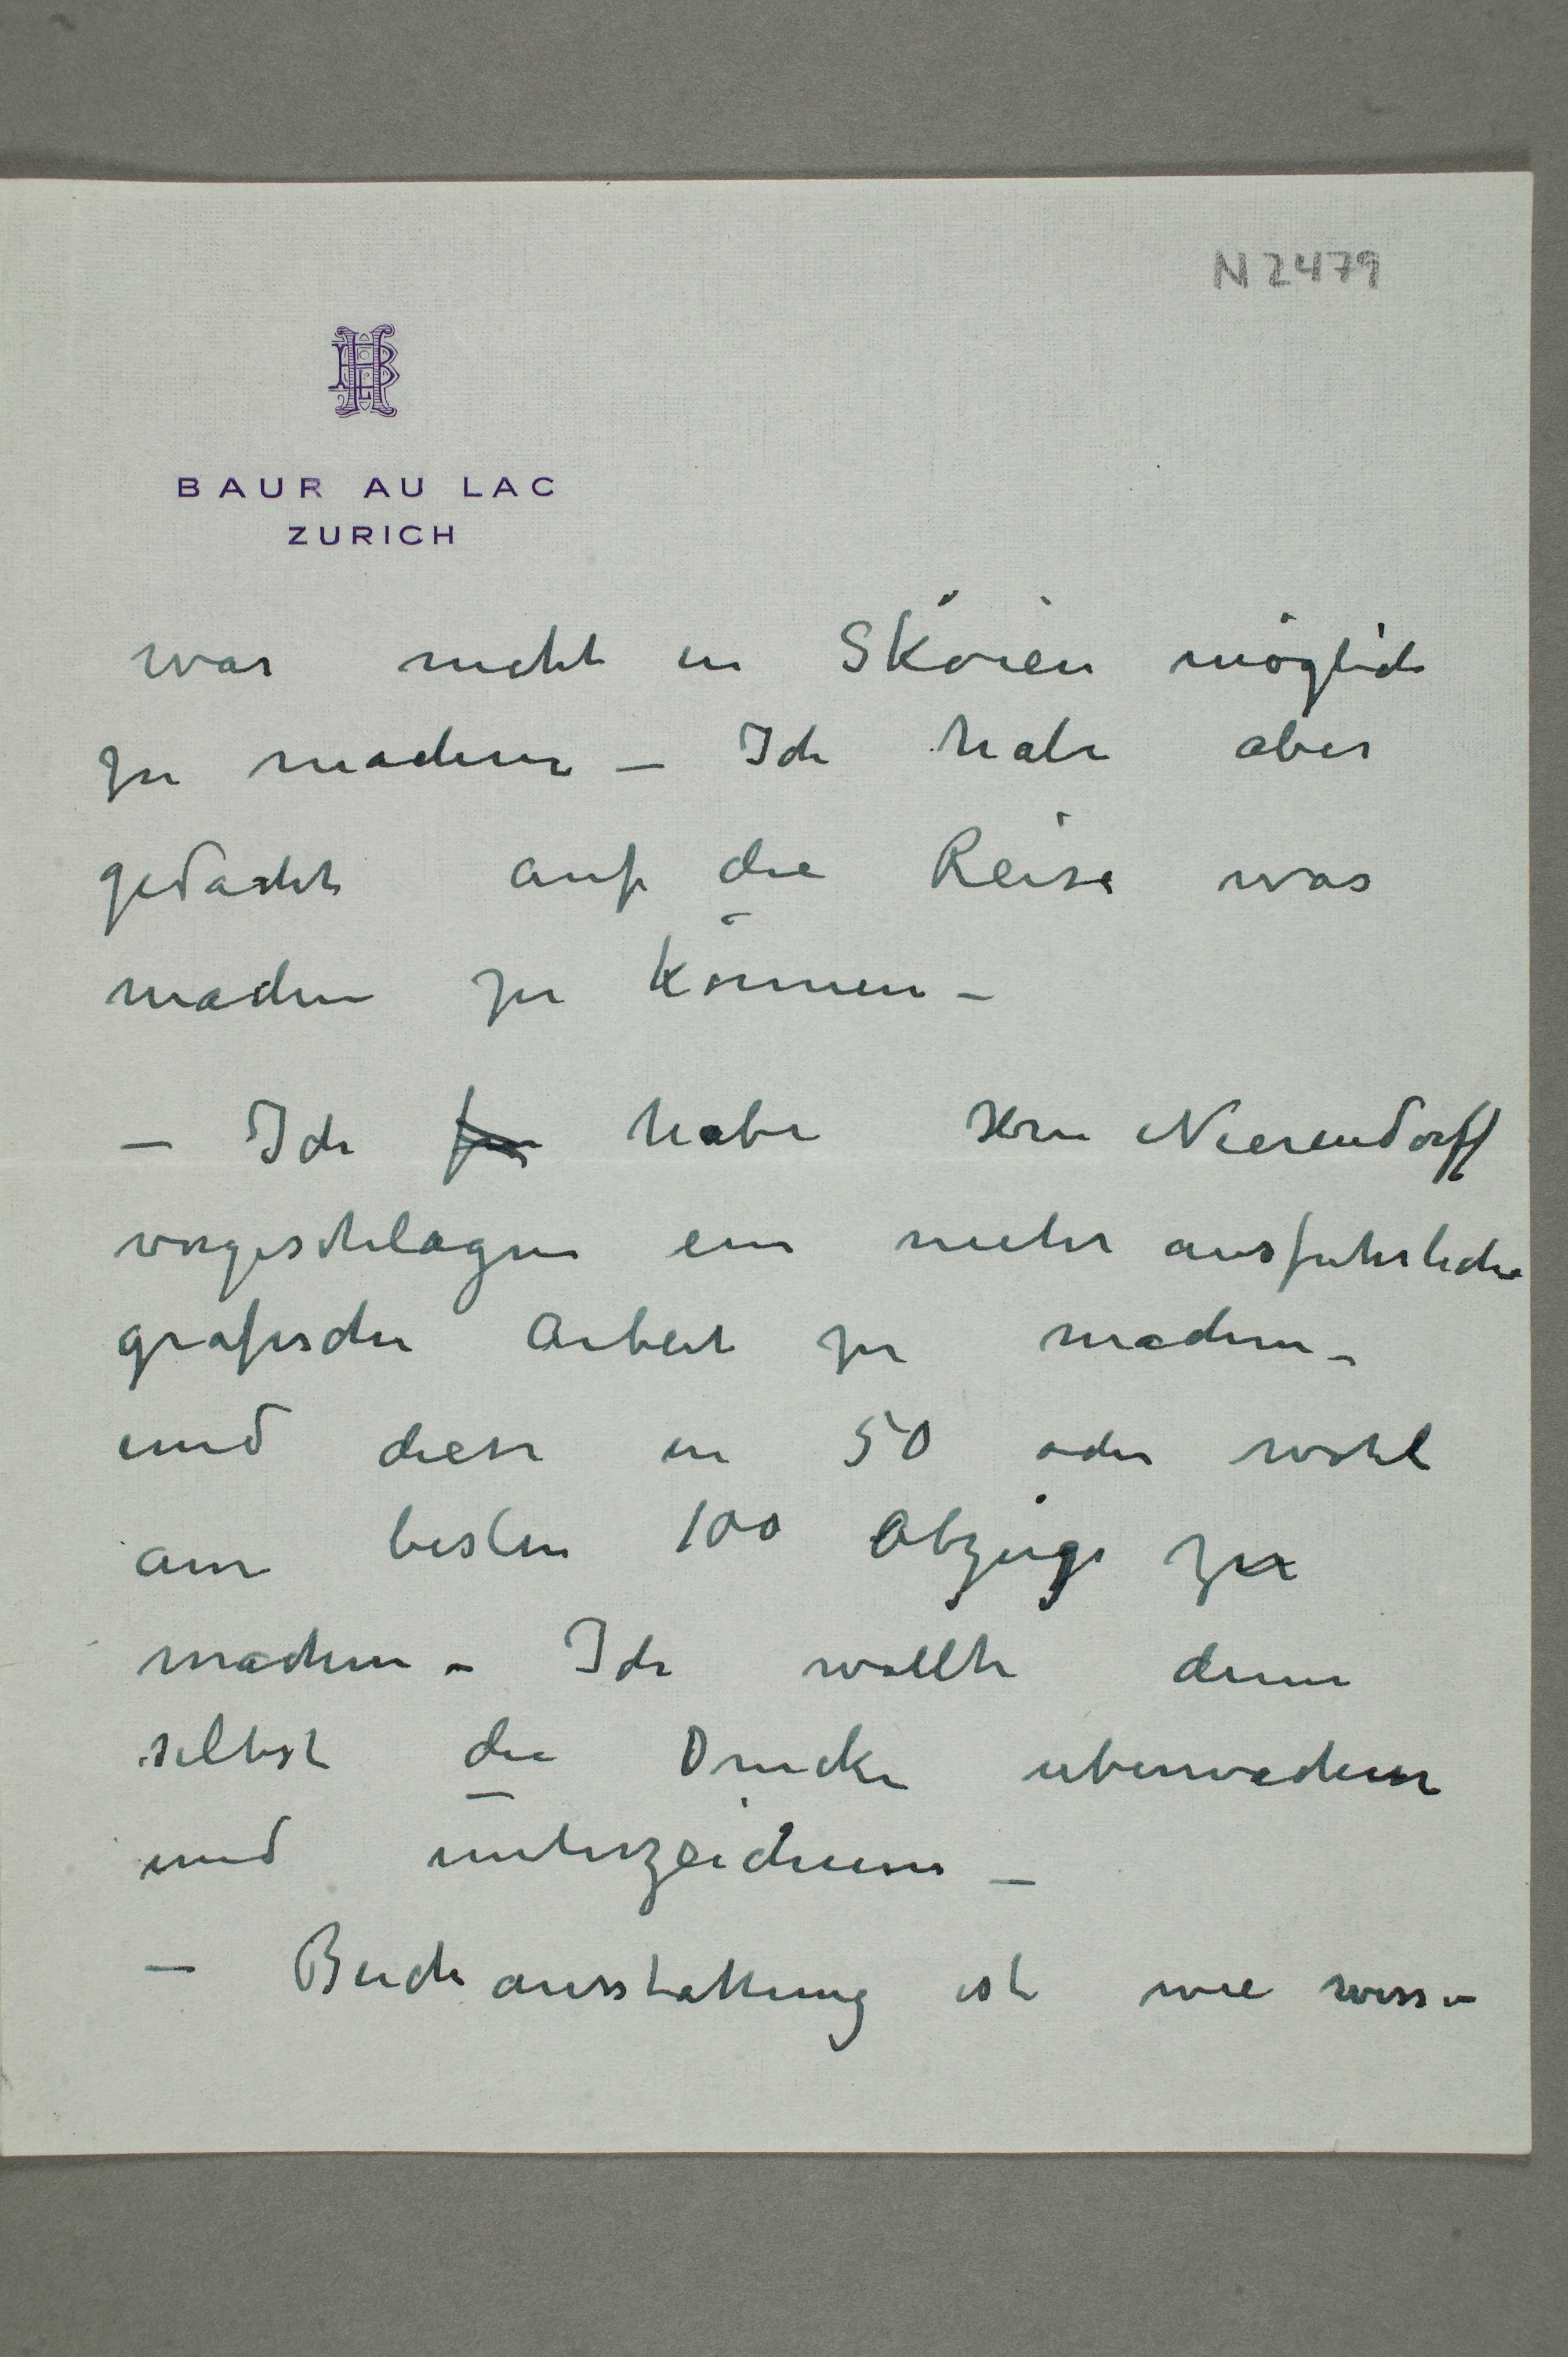 N 2479
BAUR AU LAC
ZURICH
war nicht in Sköien möglich
zu machen – Ich habe aber
gedacht auf die Reise was
machen zu können –
– Ich habe Hrn Nierendorff
vorgeschlagen ein mehr ausfuhrliche
grafische Arbeit zu machen –
und diese in 50 oder wohl
am besten 100 Abzüge zu
machen – Ich wollte denn
selbst die Drucke uberwachen
und unterzeichnen –
– Buchausstattung ist wie wissen